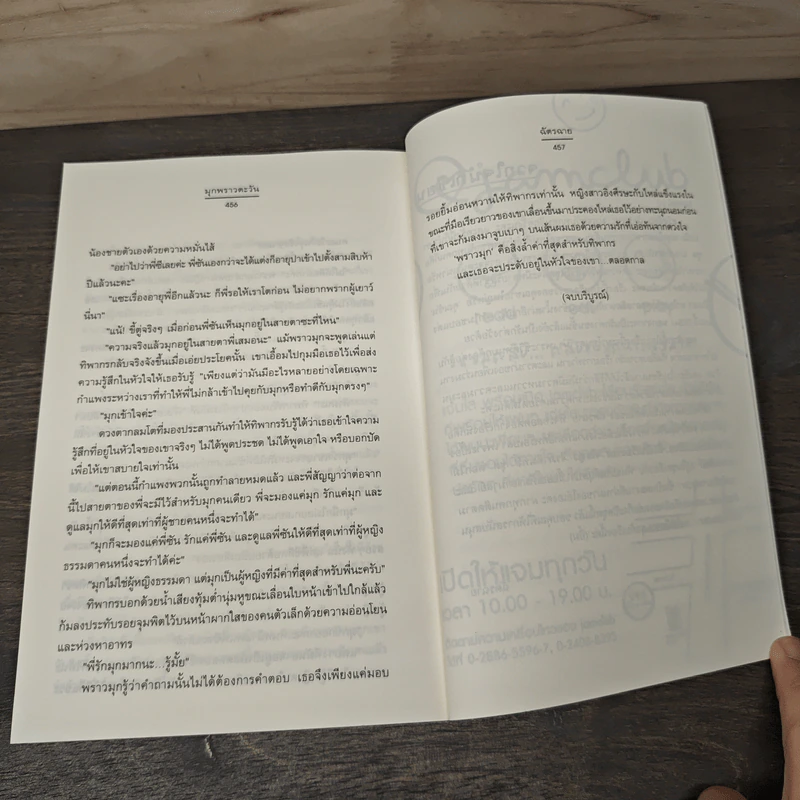 มุกพราวตะวัน
456
น้องชายตัวเองด้วยความหมั่นไส้
"อย่าไปว่าพี่ซีเลยค่ะ พี่ซันเองกว่าจะได้แต่งก็อายุปาเข้าไปตั้งสามสิบห้า
ปีแล้วนะคะ"
"แซะเรื่องอายุพี่อีกแล้วนะ ก็พี่รอให้เราโตก่อน ไม่อยากพรากผู้เยาว์
นี่นา"
"แน้! ขี้ตู่จริงๆ เมื่อก่อนพี่ซันเห็นมุกอยู่ในสายตาซะที่ไหน"
"ความจริงแล้วมุกอยู่ในสายตาพี่เสมอนะ" แม้พราวมุกจะพูดเล่นแต่
ทิพากรกลับจริงจังขึ้นเมื่อเอ่ยประโยคนั้น เขาเอื้อมไปกุมมือเธอไว้เพื่อส่ง
ความรู้สึกในหัวใจให้เธอรับรู้ "เพียงแต่ว่ามันมีอะไรหลายอย่างโดยเฉพาะ
กำแพงระหว่างเราที่ทำให้พี่ไม่กล้าเข้าไปคุยกับมุกหรือทำดีกับมุกตรงๆ"
"มุกเข้าใจค่ะ"
ดวงตากลมโตที่มองประสานกันทำให้ทิพากรรับรู้ได้ว่าเธอเข้าใจความ
รู้สึกที่อยู่ในหัวใจของเขาจริงๆ ไม่ได้พูดประชด ไม่ได้พูดเอาใจ หรือบอกปัด
เพื่อให้เขาสบายใจเท่านั้น
"แต่ตอนนี้กำแพงพวกนั้นถูกทำลายหมดแล้ว และพี่สัญญาว่าต่อจาก
นี้ไปสายตาของพี่จะมีไว้สำหรับมุกคนเดียว พี่จะมองแค่มุก รักแค่มุก และ
ดูแลมุกให้ดีที่สุดเท่าที่ผู้ชายคนหนึ่งจะทำได้"
"มุกก็จะมองแค่พี่ซัน รักแค่พี่ซัน และดูแลพี่ซันให้ดีที่สุดเท่าที่ผู้หญิง
ธรรมดาคนหนึ่งจะทำได้ค่ะ"
"มุกไม่ใช่ผู้หญิงธรรมดา แต่มุกเป็นผู้หญิงที่มีค่าที่สุดสำหรับพี่นะครับ"
ทิพากรบอกด้วยน้ำเสียงทุ้มต่ำนุ่มหูขณะเลื่อนใบหน้าเข้าไปใกล้แล้ว
ก้มลงประทับรอยจุมพิตไว้บนหน้าผากใสของคนตัวเล็กด้วยความอ่อนโยน
และห่วงหาอาทร
"พี่รักมุกมากนะ...รู้มั้ย"
พราวมุกรู้ว่าคำถามนั้นไม่ได้ต้องการคำตอบ เธอจึงเพียงแค่มอบ
ฉัตรฉาย
457
รอยยิ้มอ่อนหวานให้ทิพากรเท่านั้น หญิงสาวอิงศีรษะกับไหล่แข็งแรงใน
ขณะที่มือเรียวยาวของเขาเลื่อนขึ้นมาประคองไหล่เธอไว้อย่างทะนุถนอมก่อน
ที่เขาจะก้มลงมาจูบเบาๆ บนเส้นผมเธอด้วยความรักที่เอ่อท้นจากดวงใจ
'พราวมุก' คือสิ่งล้ำค่าที่สุดสำหรับทิพากร
และเธอจะประดับอยู่ในหัวใจของเขา...ตลอดกาล
(จบบริบูรณ์)